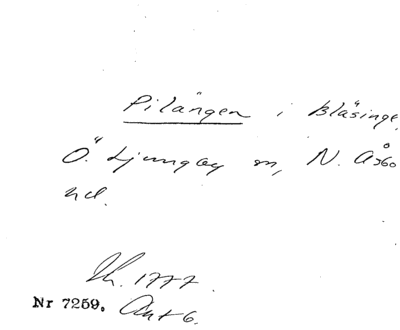 Pilängen i Bläsinge,
Ö. Ljungby sn, N. Åsbo
hd.
1777.
Nr 7259. Akt 6.